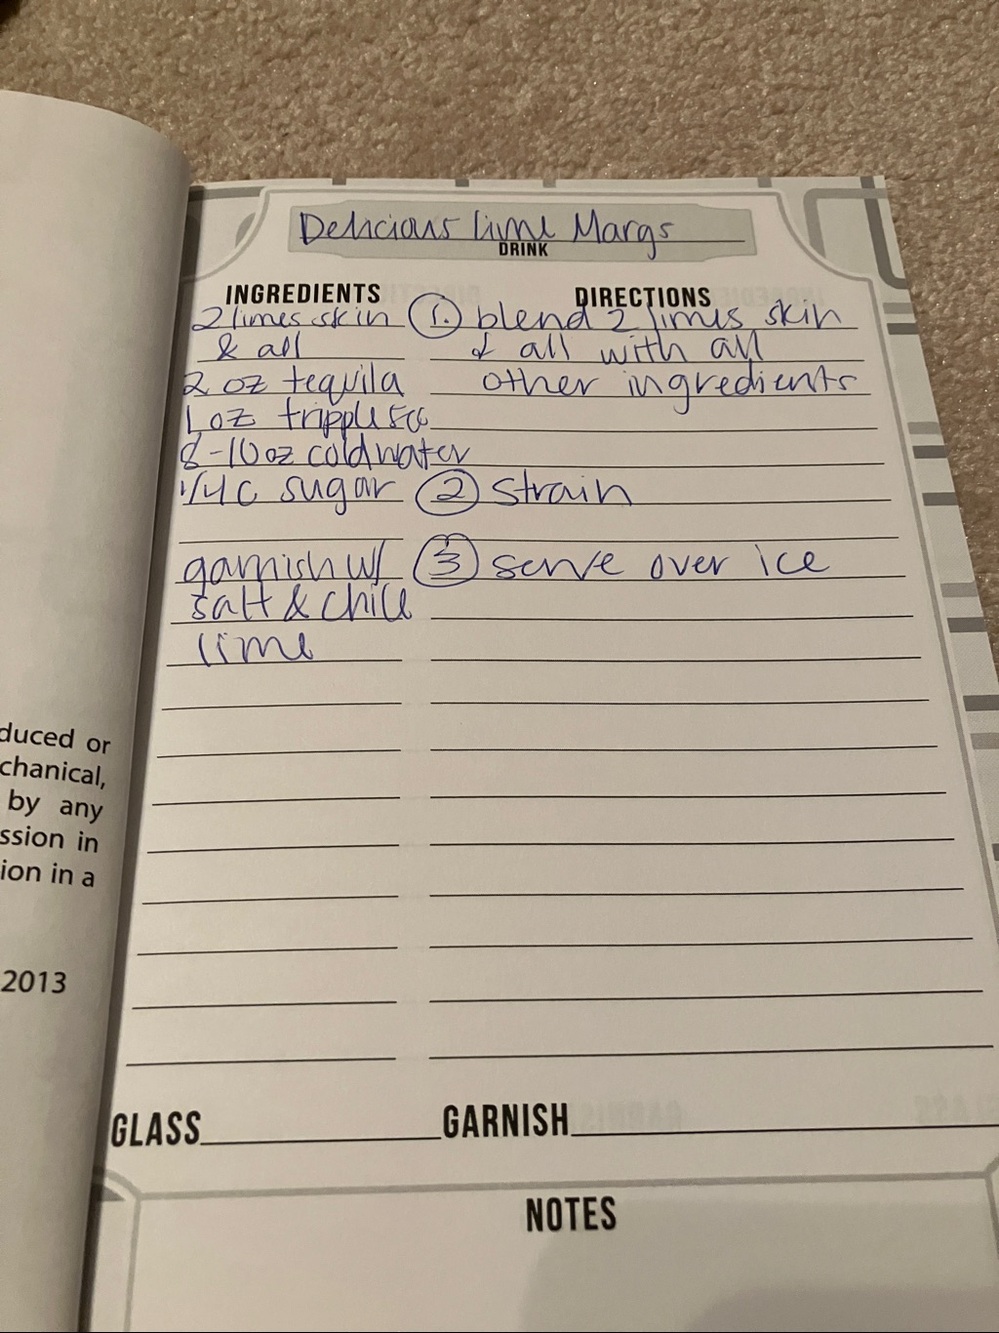 Delicious lime Margs
DRINK
INGREDIENTS
2 limes skin
& all
2 oz tequila
1 oz tripple sec
8-10 oz cold water
1/4 c sugar
garnish w/
salt & chile
lime
DIRECTIONS
1. blend 2 limes skin
& all with all
other ingredients
2 strain
3 serve over ice
GLASS
GARNISH
NOTES
duced or
chanical,
by any
ssion in
ion in a
2013